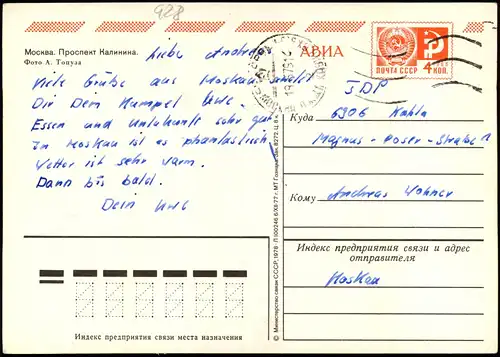 928
Москва. Проспект Калинина.
Фото А. Топуза
АВИА
ПОЧТА СССР 4 коп.
Liebe Andrea
Viele Grüße aus Moskau
Dir Dein Kumpel Uwe.
Essen und Unterkunft sehr gut
in Moskau ist es phantastisch
Wetter ist sehr warm.
Dann bis bald.
Dein Uwe
DDR
Куда 6906 Kahla
Magnus - Poser - Straße
Кому Andreas
Индекс предприятия связи и адрес
отправителя
Moskau
Индекс предприятия связи места назначения
© Министерство связи СССР, 1978